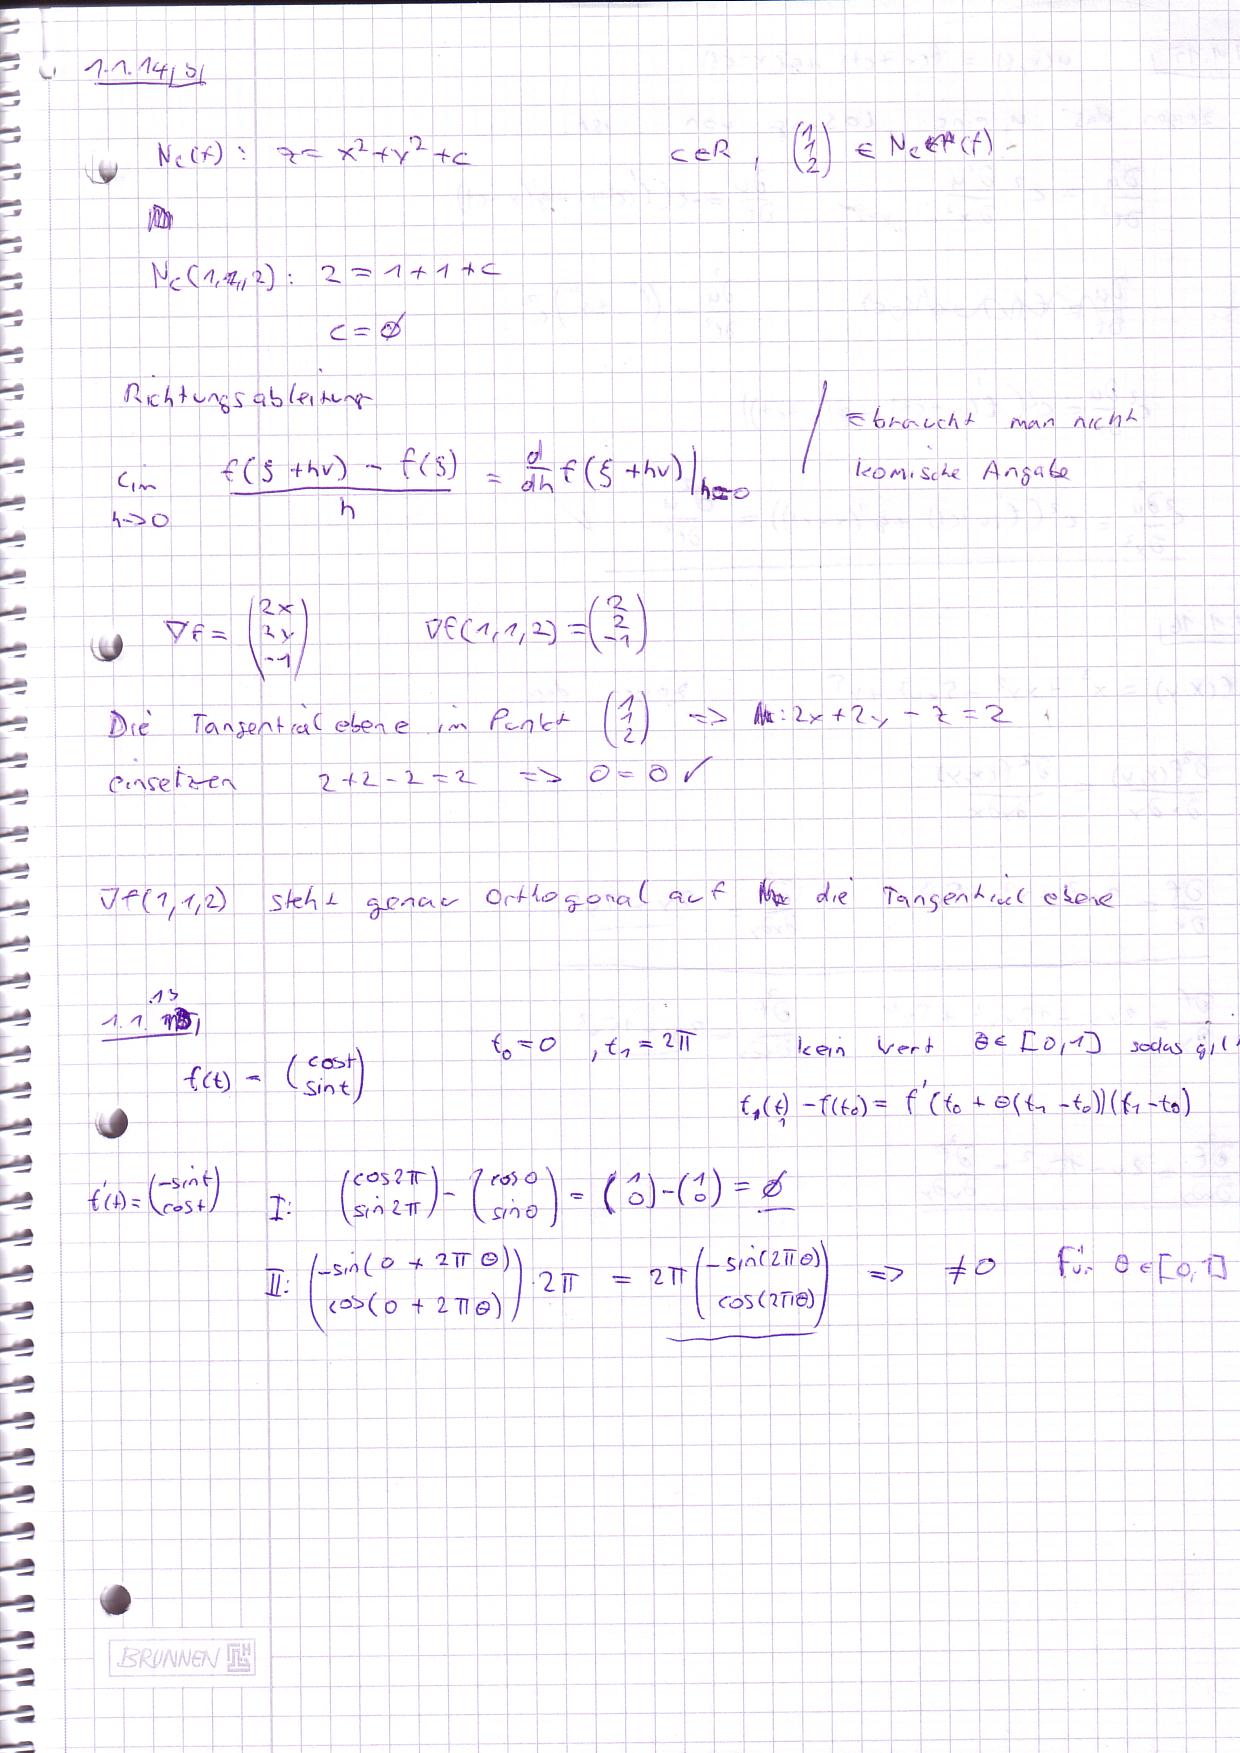 1.1.14, b)
N_c(f): z = x² + y² + c    c∈R, (1 1 2) ∈ N_c(f)
N_c(1,1,2): 2 = 1 + 1 + c
c = 0
Richtungsableitung
lim h->0 (f(ξ + hv) - f(ξ))/h = d/dh f(ξ + hv)|h=0    braucht man nicht
komische Angabe
∇f = (2x 2y -1)    ∇f(1,1,2) = (2 2 -1)
Die Tangential ebene im Punkt (1 1 2) => : 2x + 2y - z = 2
einsetzen 2+2-2 = 2 => 0 = 0 ✓
∇f(1,1,2) steht genau Orthogonal auf die Tangential ebene
1.1.13
f(t) = (cost sint)    t₀ = 0, t₁ = 2π    kein Wert θ∈[0,1] sodas gilt
f(t₁) - f(t₀) = f'(t₀ + θ(t₁ - t₀))(t₁ - t₀)
f'(t) = (-sint cost)    I: (cos2π sin2π) - (cos0 sin0) = (1 0) - (1 0) = 0
II: (-sin(0 + 2πθ) cos(0 + 2πθ)) · 2π = 2π (-sin(2πθ) cos(2πθ)) => ≠0 für θ∈[0,1]
BRUNNEN